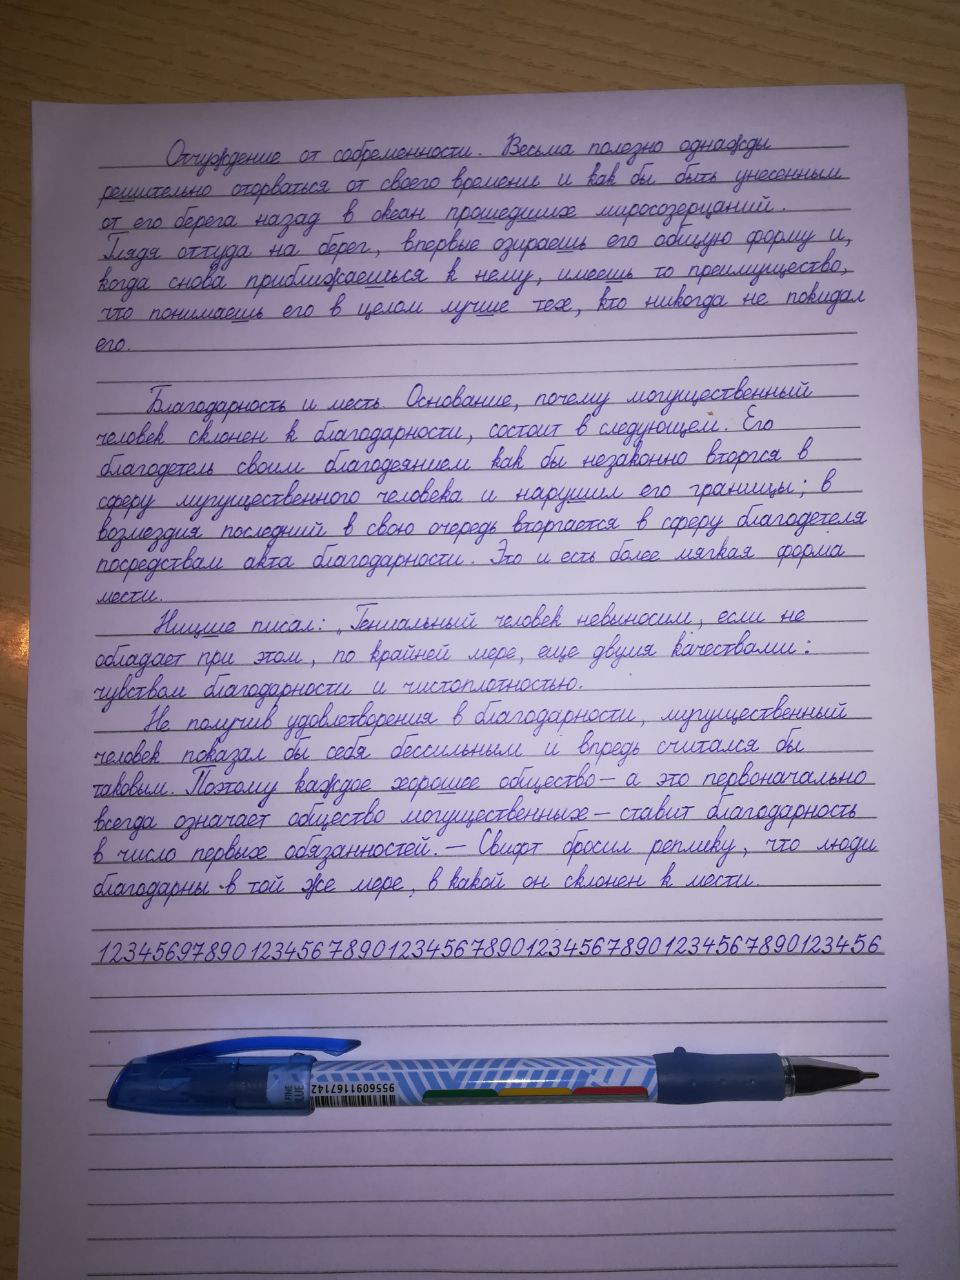 Отчуждение от современности. Весьма полезно однажды
решительно оторваться от своего времени и как бы быть унесенным
от его берега назад в океан прошедших миросозерцаний.
Глядя оттуда на берег, впервые озираешь его общую форму и,
когда снова приближаешься к нему, имеешь то преимущество,
что понимаешь его в целом лучше тех, кто никогда не покидал
его.
Благодарность и месть. Основание, почему могущественный
человек склонен к благодарности, состоит в следующем. Его
благодетель своим благодеянием как бы незаконно вторгся в
сферу мугущественного человека и нарушил его границы; в
возмездия последний в свою очередь вторгается в сферу благодетеля
посредствам акта благодарности. Это и есть более мягкая форма
мести.
Ницше писал: „Гениальный человек невыносим, если не
обладает при этом, по крайней мере, еще двумя качествами:
чувством благодарности и чистоплотностью.
Не получив удовлетворения в благодарности, мугущественный
человек показал бы себя бессильным и впредь считался бы
таковым. Поэтому каждое хорошее общество – а это первоначально
всегда означает общество могущественных – ставит благодарность
в число первых обязанностей. – Свифт бросил реплику, что люди
благодарны в той же мере, в какой он склонен к мести.
123456978901234567890123456789012345678901234567890123456
9556091167142